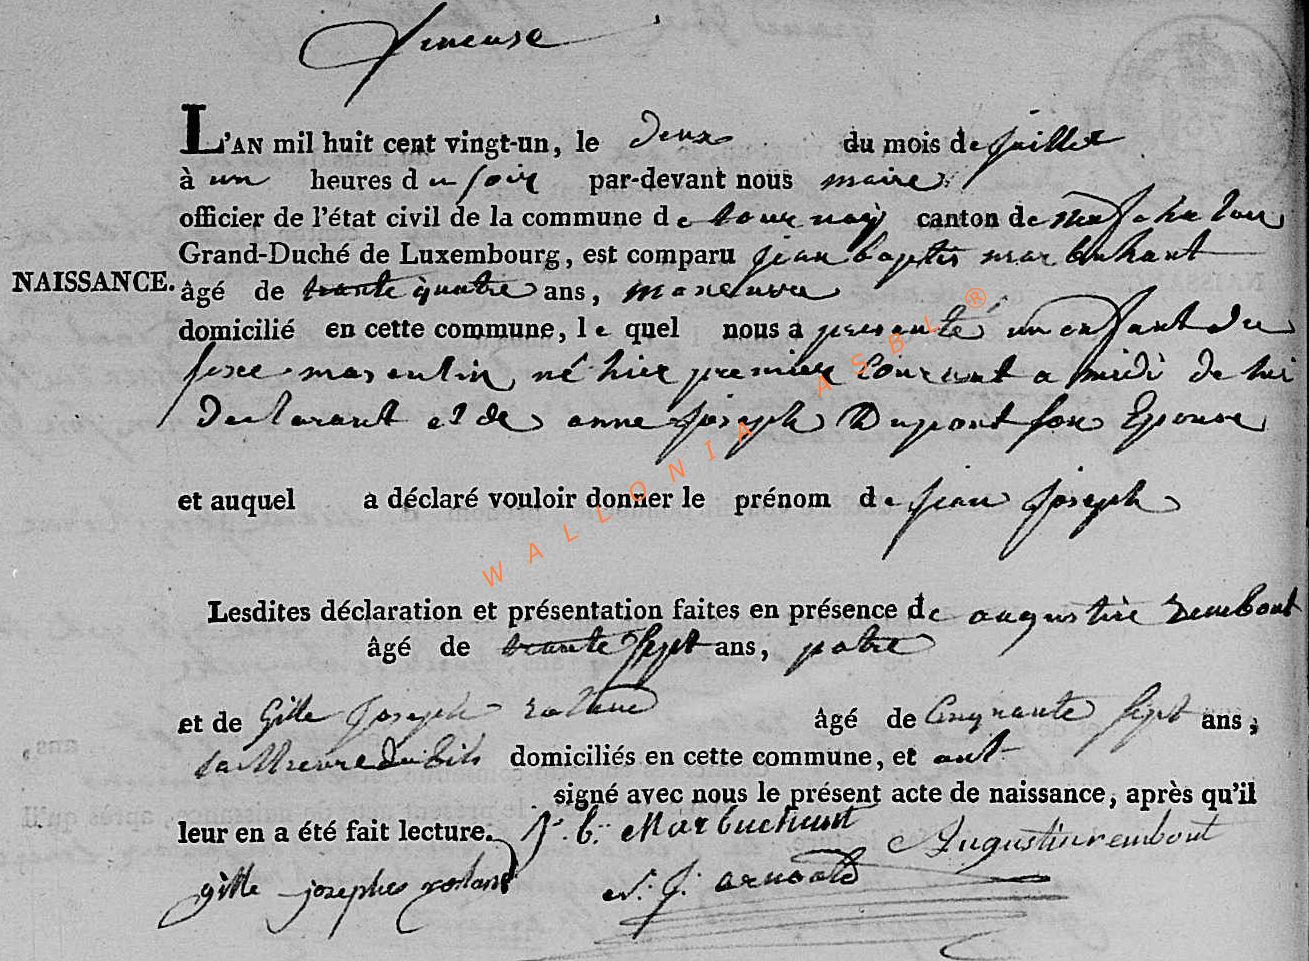 L'AN mil huit cent vingt-un, le deux du mois de juillet
à un heures du soir par-devant nous maire
officier de l'état civil de la commune de tournay canton de neufchateau
Grand-Duché de Luxembourg, est comparu jean baptis marbuhant
NAISSANCE.
âgé de trante quatre ans, maneuvre
domicilié en cette commune, le quel nous a presanté un enfant du
sexe masculin né hier premier Courant a midi de lui
Declarant et de anne joseph Dupont son Epouse
et auquel a déclaré vouloir donner le prénom de jean joseph
Lesdites déclaration et présentation faites en présence de augustin rembout
âgé de trante sept ans, patre
et de Gille joseph âgé de Cinquante sept ans,
domiciliés en cette commune, et ont
signé avec nous le présent acte de naissance, après qu'il
leur en a été fait lecture. J. b. Marbuchunt
Augustin rembout
gille josephe rolant
N. J. arnould
WALLONIA ASBL ®